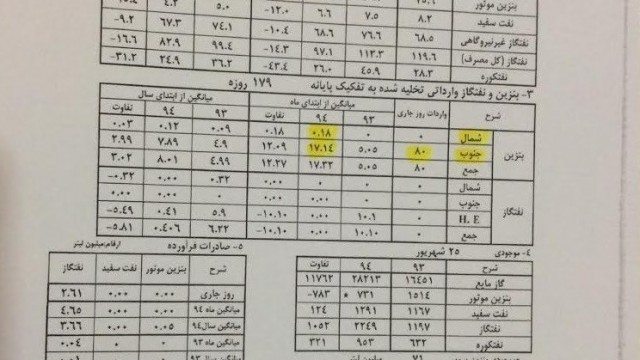 بنزین موتور ۶.۶ -۱۲.۰ ۵.۰ ۴.۲
نفت سفید ۸.۲ ۷.۵
نفتگاز غیرنیروگاهی ۶۸.۵ ۷۶.۶ ۶۸.۶ -۱۰.۴ ۷۴.۱ ۶۷.۳ -۹.۲
نفتگاز (کل مصرف) ۱۱۹.۶ ۱۱۳.۳ ۹۷.۱ -۱۴.۳ ۹۹.۴ ۸۲.۹ -۱۶.۶
نفتکوره ۲۸.۳ ۴۵.۹ ۲۶.۰ -۴۳.۴ ۳۶.۲ ۲۴.۹ -۳۱.۲
۳- بنزین و نفتگاز وارداتی تخلیه شده به تفکیک پایانه ۱۷۹ روزه
شرح واردات روز جاری میانگین از ابتدای ماه میانگین از ابتدای سال
۹۳ ۹۴ تفاوت ۹۳ ۹۴ تفاوت
بنزین
شمال ۰ ۰ ۰.۱۸ ۰.۱۸ ۰.۰۹ ۰.۱۲ ۰.۰۳
جنوب ۸۰ ۵.۰۵ ۱۷.۱۴ ۱۲.۰۹ ۴.۹ ۷.۸۹ ۲.۹۹
جمع ۸۰ ۵.۰۵ ۱۷.۳۲ ۱۲.۲۷ ۴.۹۹ ۸.۰۱ ۳.۰۲
نفتگاز
شمال ۰ ۰ ۰ ۰ ۰.۳۲ ۰.۰۰ -۰.۳۲
جنوب ۰ ۰ ۰ ۰
H.E ۰ ۱۰.۱ ۰ -۱۰.۱۰ ۵.۹ ۰.۴۱ -۵.۴۹
جمع ۰ ۱۰.۱۰ ۰ -۱۰.۱۰ ۶.۲۲ ۰.۴۰۶ -۵.۸۱
۴- موجودی ۲۵ شهریور
شرح ۹۳ ۹۴ تفاوت
گاز مایع ۱۶۴۵۱ ۲۸۲۱۳ ۱۱۷۶۲
بنزین موتور ۱۵۱۴ ۷۳۱ * -۷۸۳
نفت سفید ۱۱۶۷ ۱۲۹۱ ۱۲۴
نفتگاز ۱۱۹۷ ۲۲۴۹ ۱۰۵۲
نفتکوره ۶۳۲ ۹۵۳ ۳۲۱
۵- صادرات فرآورده ارقام:میلیون لیتر
شرح بنزین موتور نفت سفید نفتگاز
روز جاری ۰.۰۰ ۰.۰۰ ۲.۶۱
میانگین ماه ۹۴ ۰.۰۰ ۰.۰۰ ۴.۶۵
میانگین سال ۹۴ ۰.۰۵ ۰.۰۰ ۳.۶۶
میانگین ماه ۹۳ ۰.۰۰ ۰.۰۰ ۰.۰۴